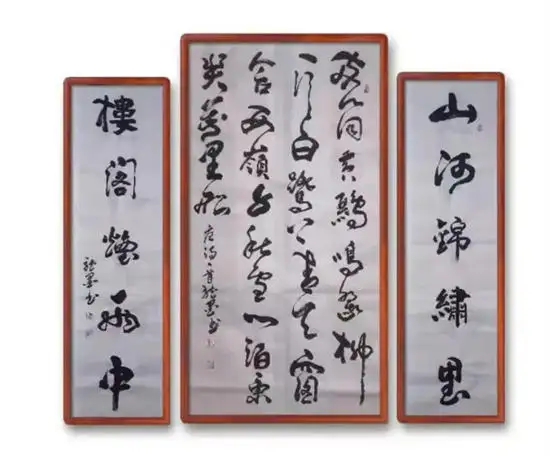 山河錦繡里
兩個黃鸝鳴翠柳
一行白鷺上青天窗
含西嶺千秋雪門泊東
吳萬里船
唐詩一首
樓閣煙雨中